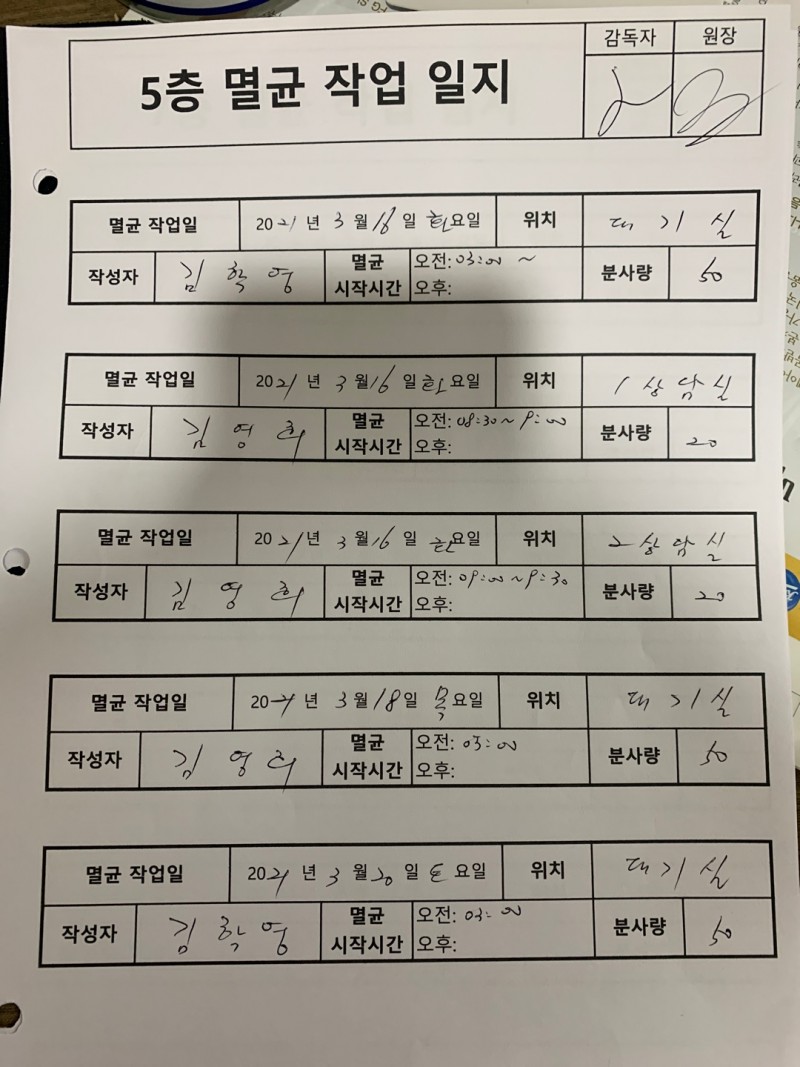 감독자 원장
5층 멸균 작업 일지
멸균 작업일 2021년 3월 16일 화요일 위치 대기실
작성자 김학영 멸균 시작시간 오전: 03:00 ~ 분사량 50
오후:
멸균 작업일 2021년 3월 16일 화요일 위치 1상담실
작성자 김영희 멸균 시작시간 오전: 08:30 ~ 9:00 분사량 20
오후:
멸균 작업일 2021년 3월 16일 화요일 위치 2상담실
작성자 김영희 멸균 시작시간 오전: 09:00 ~ 9:30 분사량 20
오후:
멸균 작업일 2021년 3월 18일 목요일 위치 대기실
작성자 김영희 멸균 시작시간 오전: 03:00 분사량 50
오후:
멸균 작업일 2021년 3월 20일 토요일 위치 대기실
작성자 김학영 멸균 시작시간 오전: 03:00 분사량 50
오후: